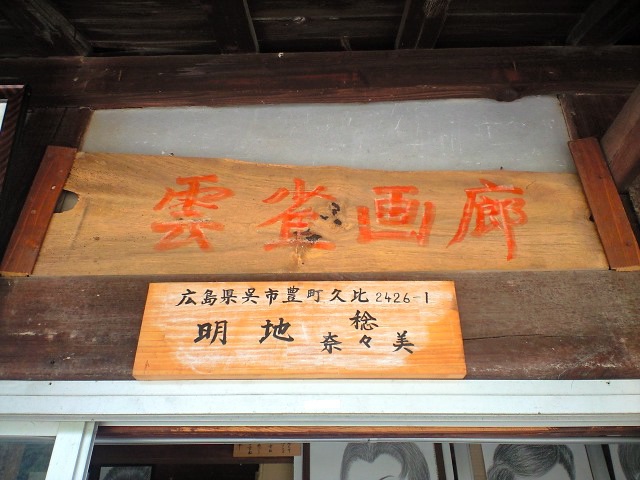 雲雀画廊
広島県呉市豊町久比2426-1
明地 稔
奈々美